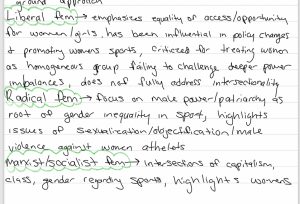 ground approach
Liberal fem → emphasizes equality of access/opportunity
for women/girls, has been influential in policy changes
& promoting womens sports, criticized for treating women
as homogeneous group failing to challenge deeper power
imbalances, does not fully address intersectionality
Radical fem → focus on male power/patriarchy as
root of gender inequality in sport, highlights
issues of sexualization/objectification/male
violence against women athelets
Marxist/socialist fem → intersections of capitalism,
class, gender regarding sports, highlights womens